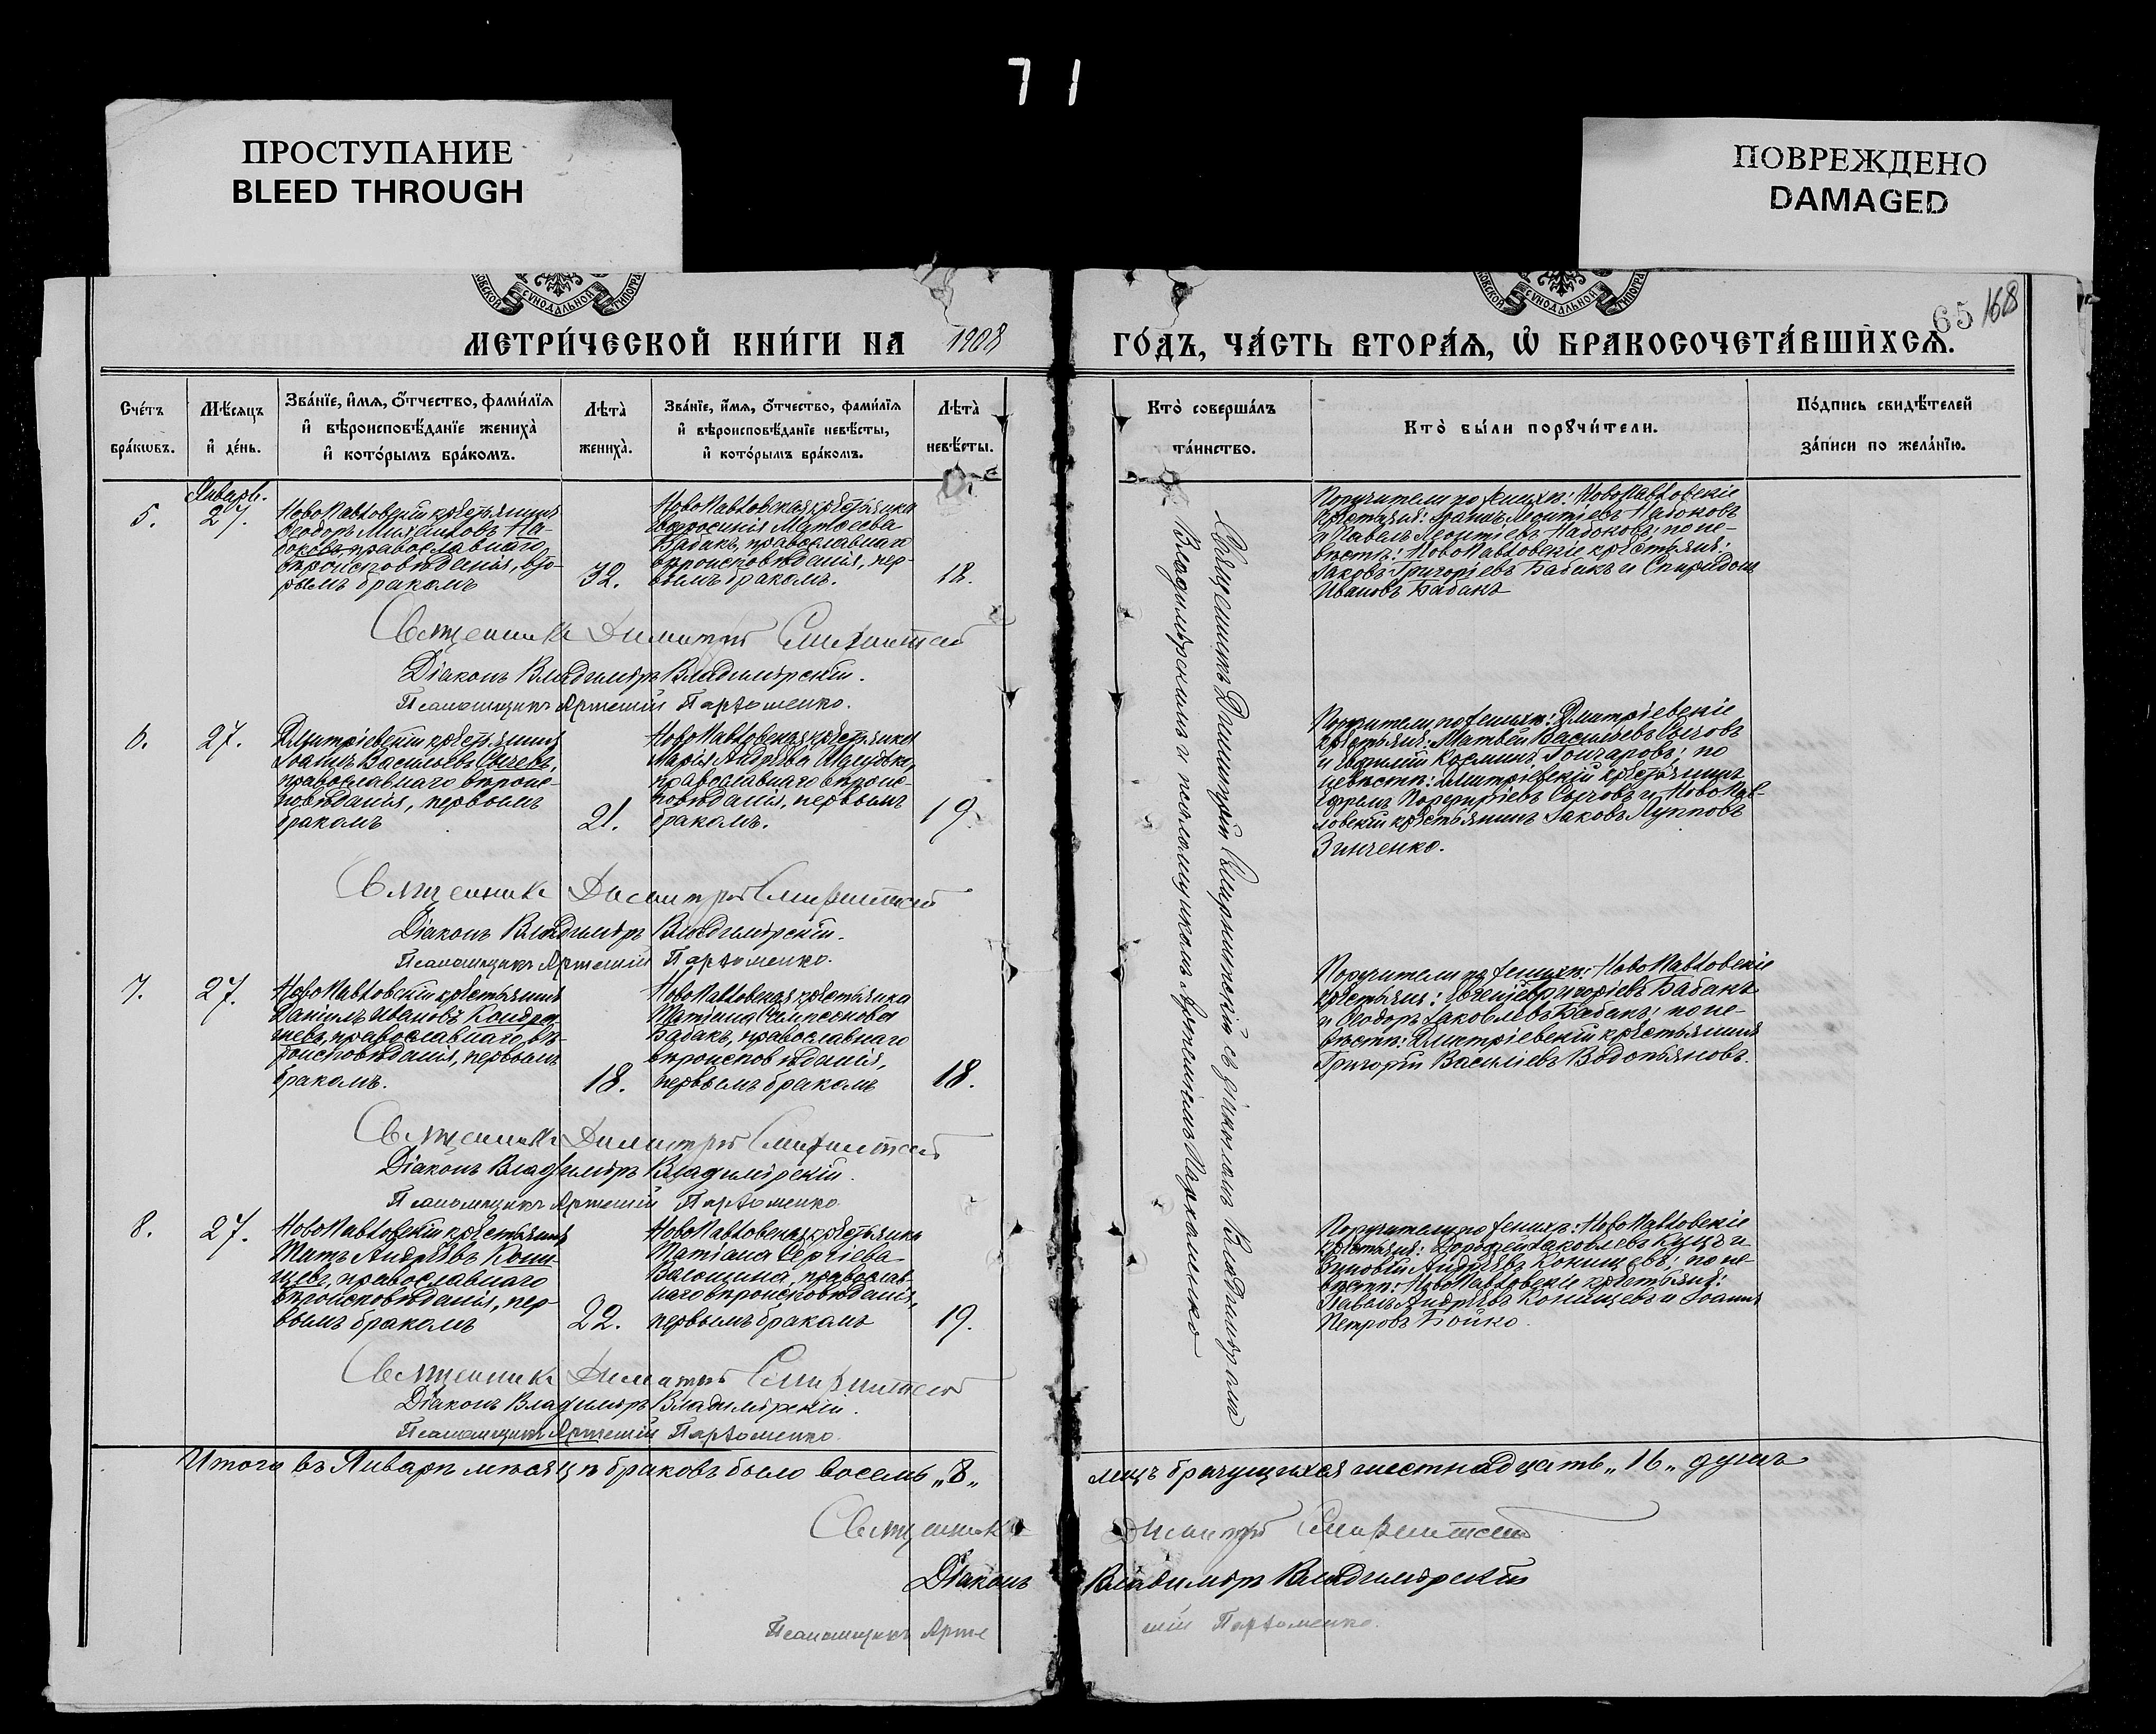 71
ПРОСТУПАНИЕ
BLEED THROUGH
ПОВРЕЖДЕНО
DAMAGED
65 168
МЕТРИ́ЧЕСКОЙ КНИ́ГИ НА 1908 ГО́ДЪ, ЧА́СТЬ ВТОРА́Ѧ, Ѡ҆ БРАКОСОЧЕТА́ВШИХСѦ.
Сче́тъ бра́кѡвъ.
Мѣ́сѧцъ и҆ де́нь.
Зва́нїе, и҆́мѧ, ѻ҆́тчество, фами́лїѧ
и҆ вѣроисповѣ́данїе жениха̀
и҆ кото́рымъ бра́комъ.
Лѣта̀ жениха̀.
Зва́нїе, и҆́мѧ, ѻ҆́тчество, фами́лїѧ
и҆ вѣроисповѣ́данїе невѣ́сты,
и҆ кото́рымъ бра́комъ.
Лѣта̀ невѣ́сты.
Кто̀ соверша́лъ
та́инство.
Кто̀ бы́ли порꙋчи́тели.
По́дпись свидѣ́телей
за́писи по жела́нїю.
Январь.
5.
27.
НовоПавловскій крестьянинъ
Ѳеодоръ Михайловъ На-
боковъ, православнаго
вѣроисповѣданія, вто-
рымъ бракомъ
32.
НовоПавловская крестьянка
Матѳеева
Бабакъ, православнаго
вѣроисповѣданія, пер-
вымъ бракомъ.
18.
Поручители по женихѣ: НовоПавловскіе
крестьяне: Іоаннъ Леонтіевъ Набоковъ
и Павелъ Леонтіевъ Набоковъ; по не-
вѣстѣ: НовоПавловскіе крестьяне:
Іаковъ Григоріевъ Бабакъ и Спиридонъ
Ивановъ Бабакъ
Священникъ Димитрій
Діаконъ Владиміръ Владимірскій.
Псаломщикъ Артемій Пархоменко.
6.
27.
Дмитріевскій крестьянинъ
Іоаннъ Васильевъ Сычевъ,
православнаго вѣроис-
повѣданія, первымъ
бракомъ
21.
НовоПавловская крестьянка
Марія Андреева
православнаго вѣроис-
повѣданія, первымъ
бракомъ.
19.
Поручители по женихѣ: Дмитріевскіе
крестьяне: Матвей Васильевъ Сычовъ
и Косминъ Гончаровъ; по
невѣстѣ: Дмитріевскій крестьянинъ
Ефремъ Порфиріевъ Сычовъ и НовоПав-
ловскій крестьянинъ Іаковъ Лупповъ
Зинченко.
Священникъ Димитрій
Діаконъ Владиміръ Владимірскій.
Псаломщикъ Артемій Пархоменко.
7.
27.
НовоПавловскій крестьянинъ
Даніилъ Ивановъ Кондра-
шевъ, православнаго вѣ-
роисповѣданія, первымъ
бракомъ.
18.
НовоПавловская крестьянка
Татіана Сампсонова
Бабакъ, православнаго
вѣроисповѣданія,
первымъ бракомъ
18.
Поручители по женихѣ: НовоПавловскіе
крестьяне: Григоріевъ Бабакъ
и Ѳеодоръ Іаковлевъ Бабакъ; по не-
вѣстѣ: Дмитріевскій крестьянинъ
Григорій Василіевъ Водопьяновъ.
Священникъ Димитрій
Діаконъ Владиміръ Владимірскій.
Псаломщикъ Артемій Пархоменко
8.
27.
НовоПавловскій крестьянинъ
Титъ Андреевъ Кони-
щевъ, православнаго
вѣроисповѣданія, пер-
вымъ бракомъ
22.
НовоПавловская крестьянка
Татіана Сергіева
православ-
наго вѣроисповѣданія,
первымъ бракомъ
19.
Поручители по женихѣ: НовоПавловскіе
крестьяне: Дорофей Іаковлевъ Куцъ и
Зиновій Андреевъ Конищевъ; по не-
вѣстѣ: НовоПавловскіе крестьяне:
Павелъ Андреевъ Конищевъ и Іоаннъ
Петровъ Бойко.
Священникъ Димитрій
Діаконъ Владиміръ Владимірскій.
Псаломщикъ Артемій Пархоменко.
Священникъ Димитрій съ діакономъ Владиміромъ
Владимірскимъ и псаломщикомъ Артеміемъ Пархоменко
Итого въ Январѣ мѣсяцѣ браковъ было восемь „8„ лицъ брачущихся шестнадцать „16„ душъ
Священникъ Димитрій
Діаконъ Владиміръ Владимірскій
Псаломщикъ Артемій Пархоменко.